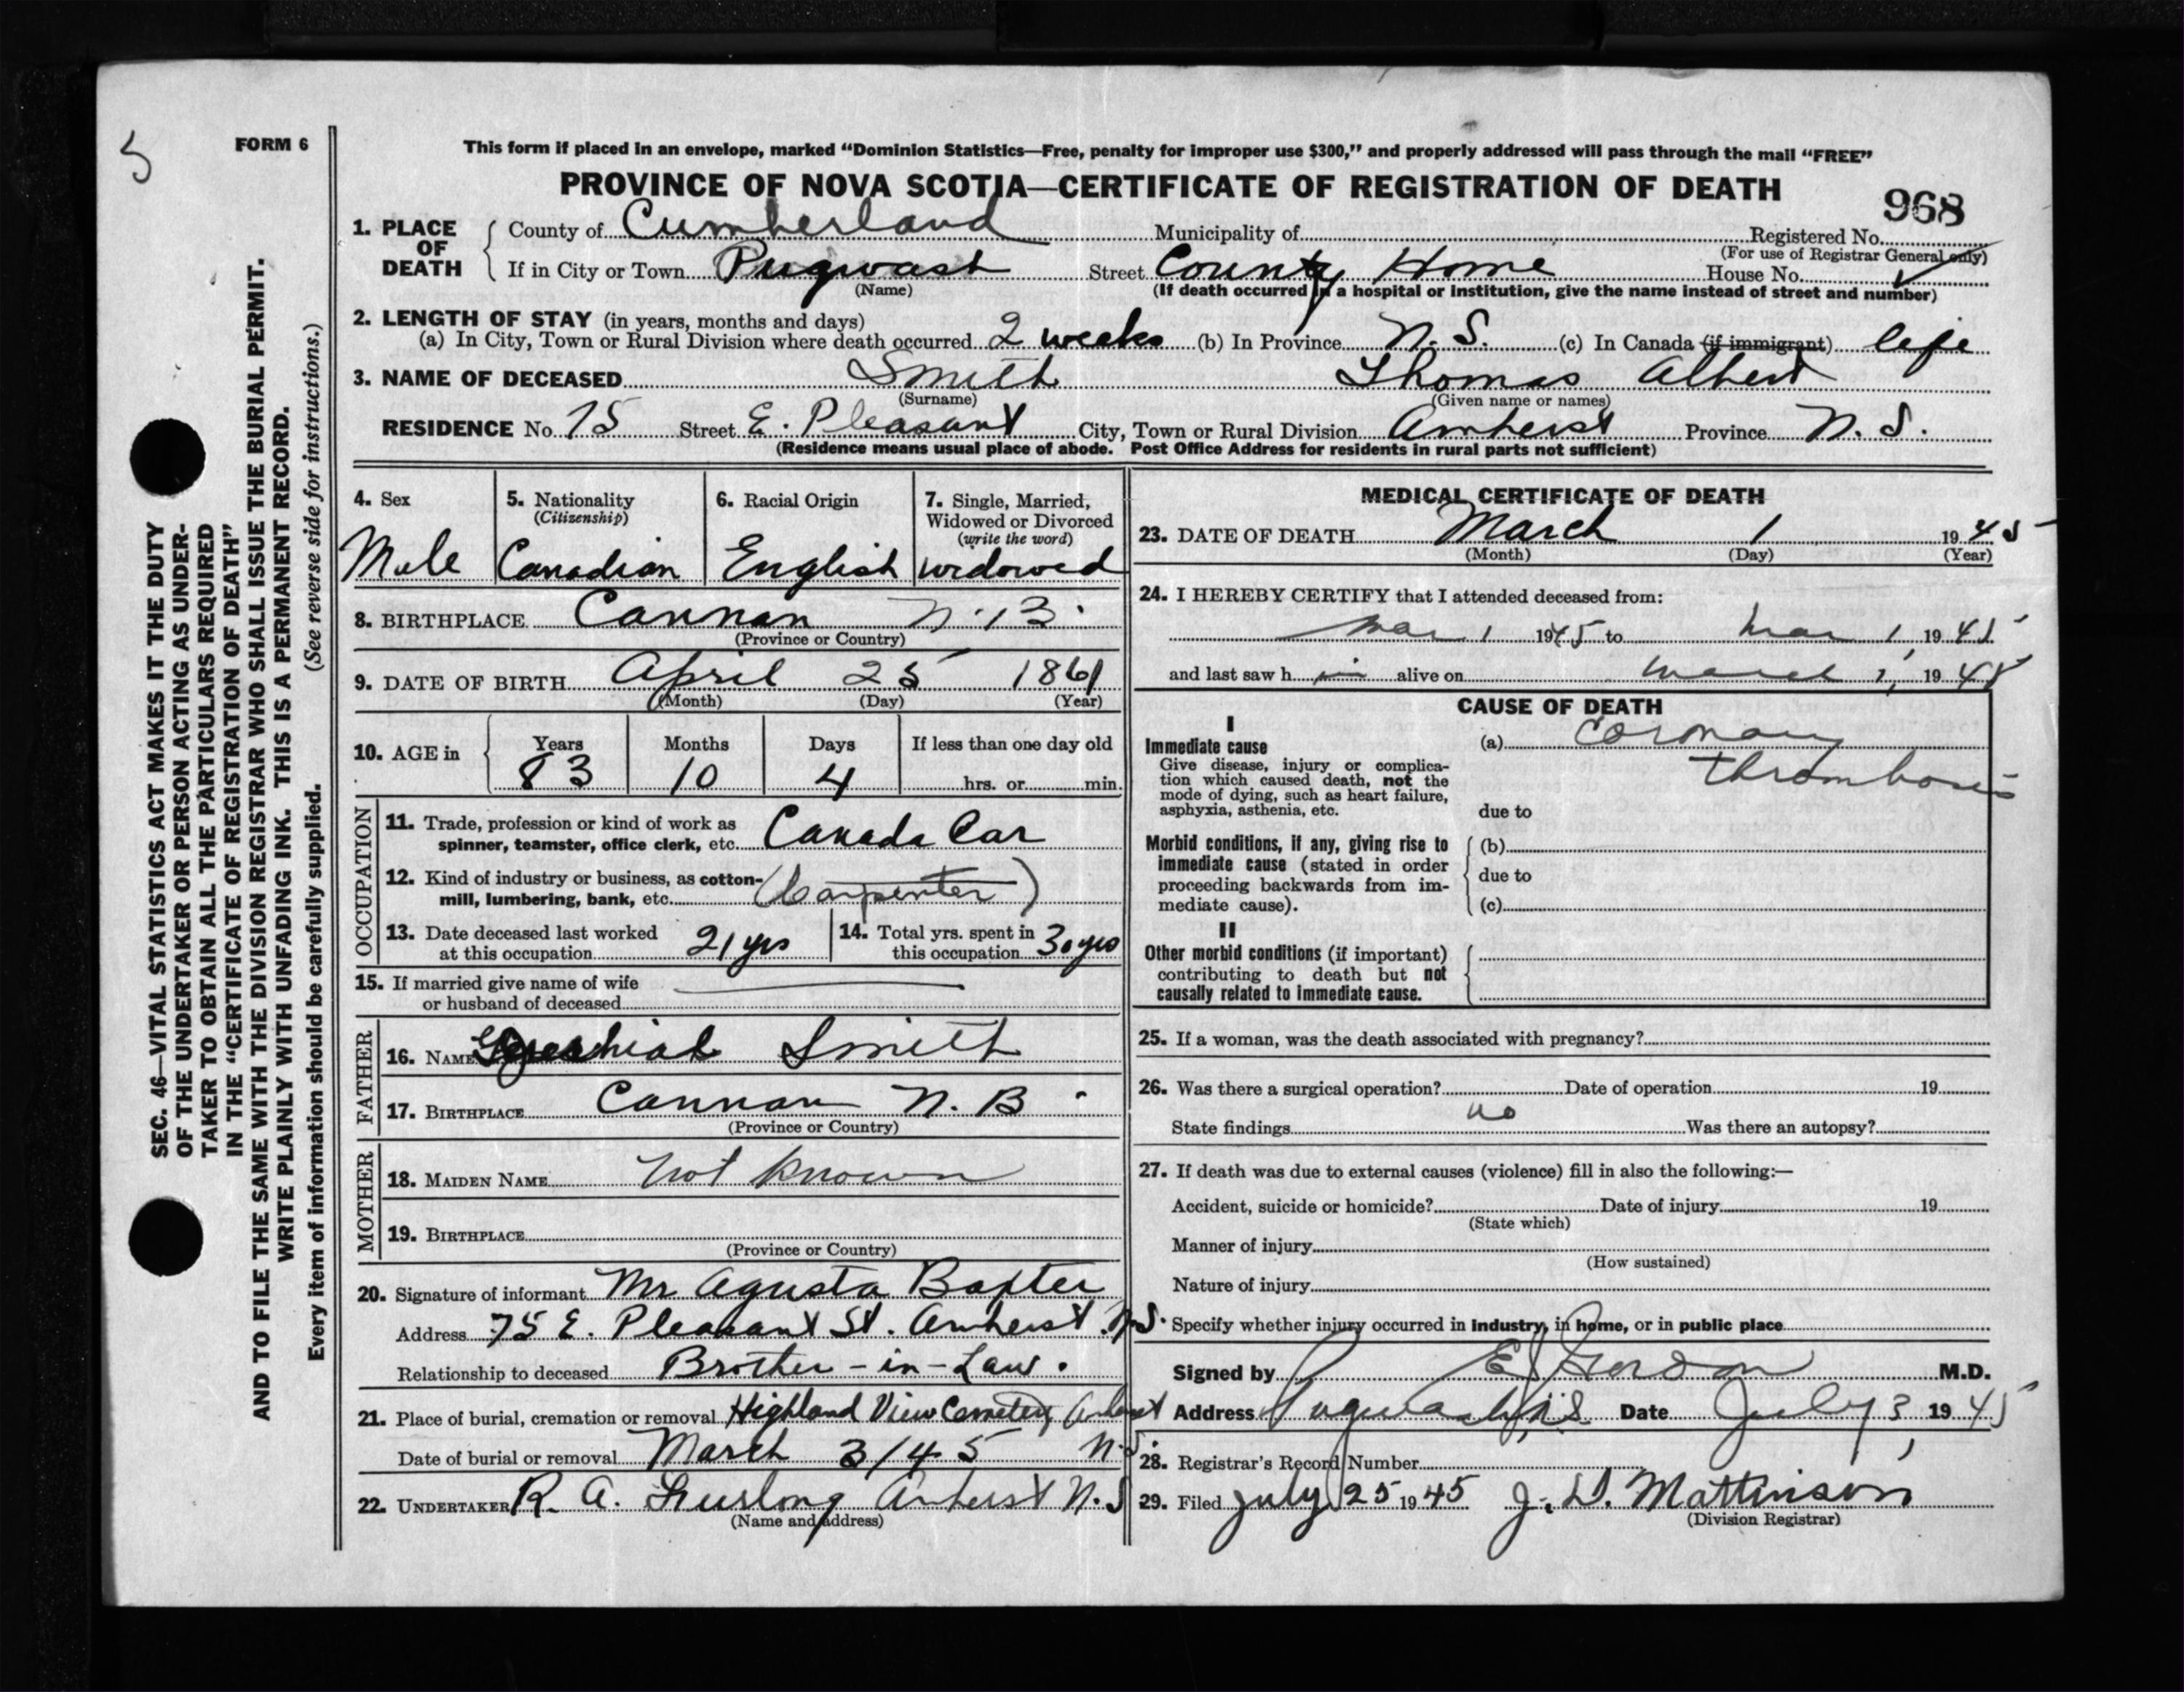 5
FORM 6
This form if placed in an envelope, marked "Dominion Statistics—Free, penalty for improper use $300," and properly addressed will pass through the mail "FREE"
PROVINCE OF NOVA SCOTIA—CERTIFICATE OF REGISTRATION OF DEATH
968
1. PLACE OF DEATH County of Cumberland Municipality of Registered No.
(For use of Registrar General only)
If in City or Town Pugwash Street County Home House No.
(Name) (If death occurred in a hospital or institution, give the name instead of street and number)
2. LENGTH OF STAY (in years, months and days)
(a) In City, Town or Rural Division where death occurred 2 weeks (b) In Province N.S. (c) In Canada (if immigrant) life
3. NAME OF DECEASED Smith Thomas Albert
(Surname) (Given name or names)
RESIDENCE No. 75 Street E. Pleasant City, Town or Rural Division Amherst Province N.S.
(Residence means usual place of abode. Post Office Address for residents in rural parts not sufficient)
4. Sex
Male
5. Nationality
(Citizenship)
Canadian
6. Racial Origin
English
7. Single, Married,
Widowed or Divorced
(write the word)
widowed
8. BIRTHPLACE Cannan N.B.
(Province or Country)
9. DATE OF BIRTH April 25 1861
(Month) (Day) (Year)
10. AGE in Years Months Days If less than one day old
83 10 4 hrs. or min.
OCCUPATION
11. Trade, profession or kind of work as
spinner, teamster, office clerk, etc. Canada Car
12. Kind of industry or business, as cotton-
mill, lumbering, bank, etc. (Carpenter)
13. Date deceased last worked
at this occupation 21 yrs
14. Total yrs. spent in
this occupation 30 yrs
15. If married give name of wife
or husband of deceased
FATHER
16. NAME Smith
17. BIRTHPLACE Cannan N.B.
(Province or Country)
MOTHER
18. MAIDEN NAME not known
19. BIRTHPLACE
(Province or Country)
20. Signature of informant Mr Agusta Baxter
Address 75 E. Pleasant St. Amherst N.S.
Relationship to deceased Brother-in-Law.
21. Place of burial, cremation or removal Highland View Cemetery Amherst
N.S.
Date of burial or removal March 3/45
22. UNDERTAKER R. A. Furlong Amherst N.S
(Name and address)
MEDICAL CERTIFICATE OF DEATH
23. DATE OF DEATH March 1 1945
(Month) (Day) (Year)
24. I HEREBY CERTIFY that I attended deceased from:
Mar 1 1945 to Mar 1, 1945
and last saw h im alive on March 1, 1945
CAUSE OF DEATH
I
Immediate cause
Give disease, injury or complica-
tion which caused death, not the
mode of dying, such as heart failure,
asphyxia, asthenia, etc.
(a) Coronary
thrombosis
due to
Morbid conditions, if any, giving rise to
immediate cause (stated in order
proceeding backwards from im-
mediate cause).
(b)
due to
(c)
II
Other morbid conditions (if important)
contributing to death but not
causally related to immediate cause.
25. If a woman, was the death associated with pregnancy?
26. Was there a surgical operation? Date of operation 19
no
State findings Was there an autopsy?
27. If death was due to external causes (violence) fill in also the following:—
Accident, suicide or homicide? Date of injury 19
(State which)
Manner of injury
(How sustained)
Nature of injury
Specify whether injury occurred in industry, in home, or in public place
Signed by E Gordon M.D.
Address Pugwash, N.S Date July 3 1945
28. Registrar's Record Number
29. Filed July 25 1945 J. D. Mattinson
(Division Registrar)
SEC. 46—VITAL STATISTICS ACT MAKES IT THE DUTY
OF THE UNDERTAKER OR PERSON ACTING AS UNDER-
TAKER TO OBTAIN ALL THE PARTICULARS REQUIRED
IN THE "CERTIFICATE OF REGISTRATION OF DEATH"
AND TO FILE THE SAME WITH THE DIVISION REGISTRAR WHO SHALL ISSUE THE BURIAL PERMIT.
WRITE PLAINLY WITH UNFADING INK. THIS IS A PERMANENT RECORD.
Every item of information should be carefully supplied. (See reverse side for instructions.)